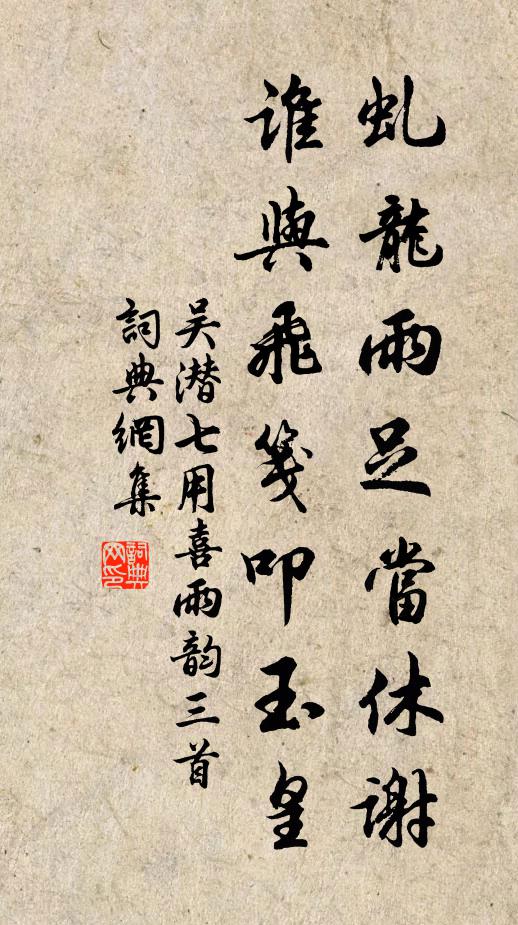 虬龍雨足當休謝
誰與飛箋叩玉皇
吴潜七用喜雨韵三首
詞典網集
詞典网印